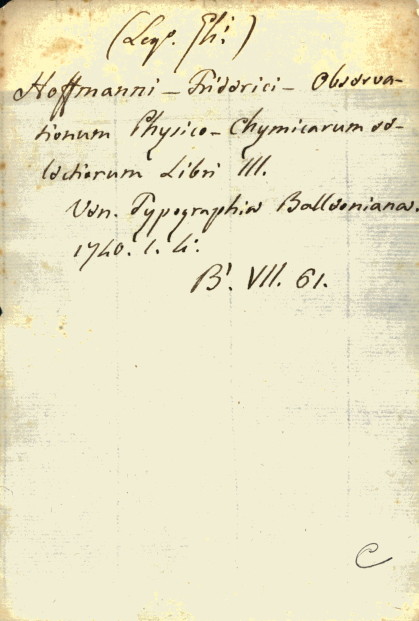 Hoffmanni - Friderici - Observa-
tionum Physico-Chymicarum se-
lectiorum Libri III.
Ven. Typographia Balleoniana.
1740. 1. 4.
B. VII. 61.
C